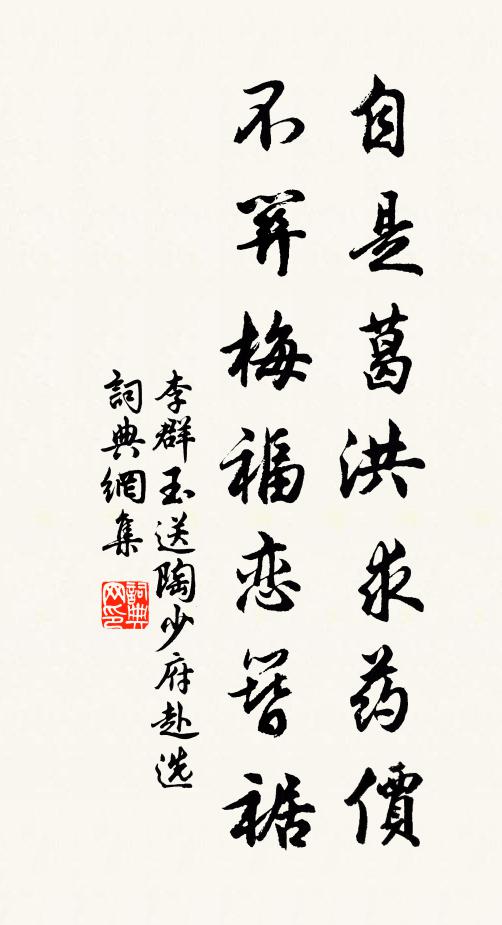 自是葛洪求药價
不筭梅福恋簪裾
李群玉送陶少府赴选
詞典網集
詞典网印